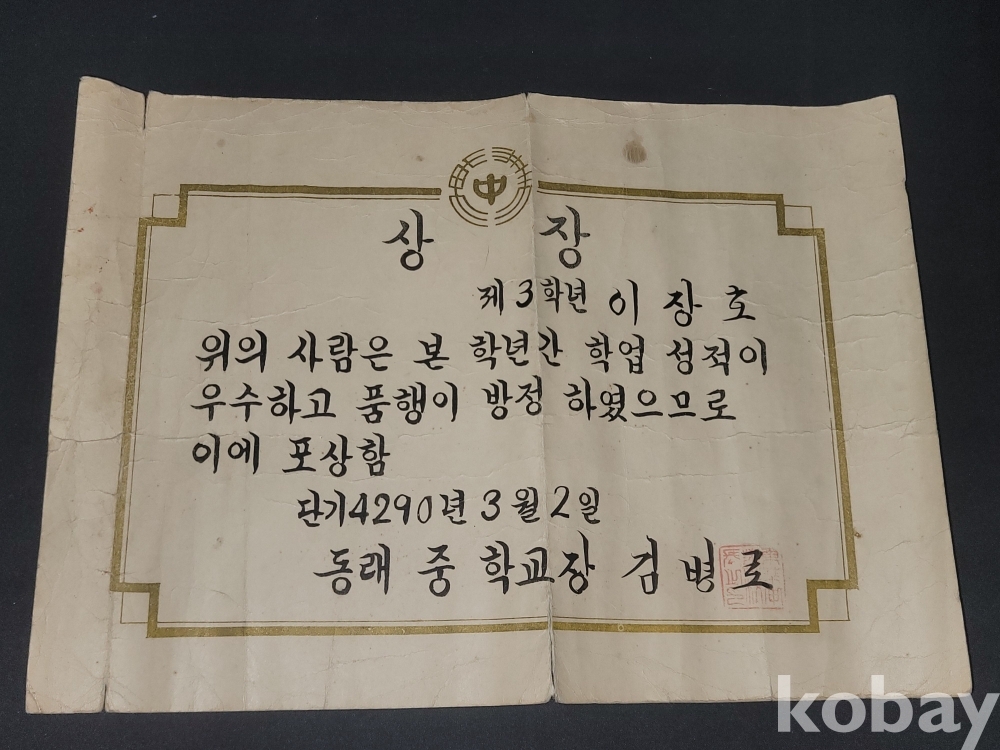 中
상 장
제3학년 이장호
위의 사람은 본 학년간 학업 성적이
우수하고 품행이 방정 하였으므로
이에 포상함
단기4290년 3월 2일
동래 중 학교장 김병로
kobay